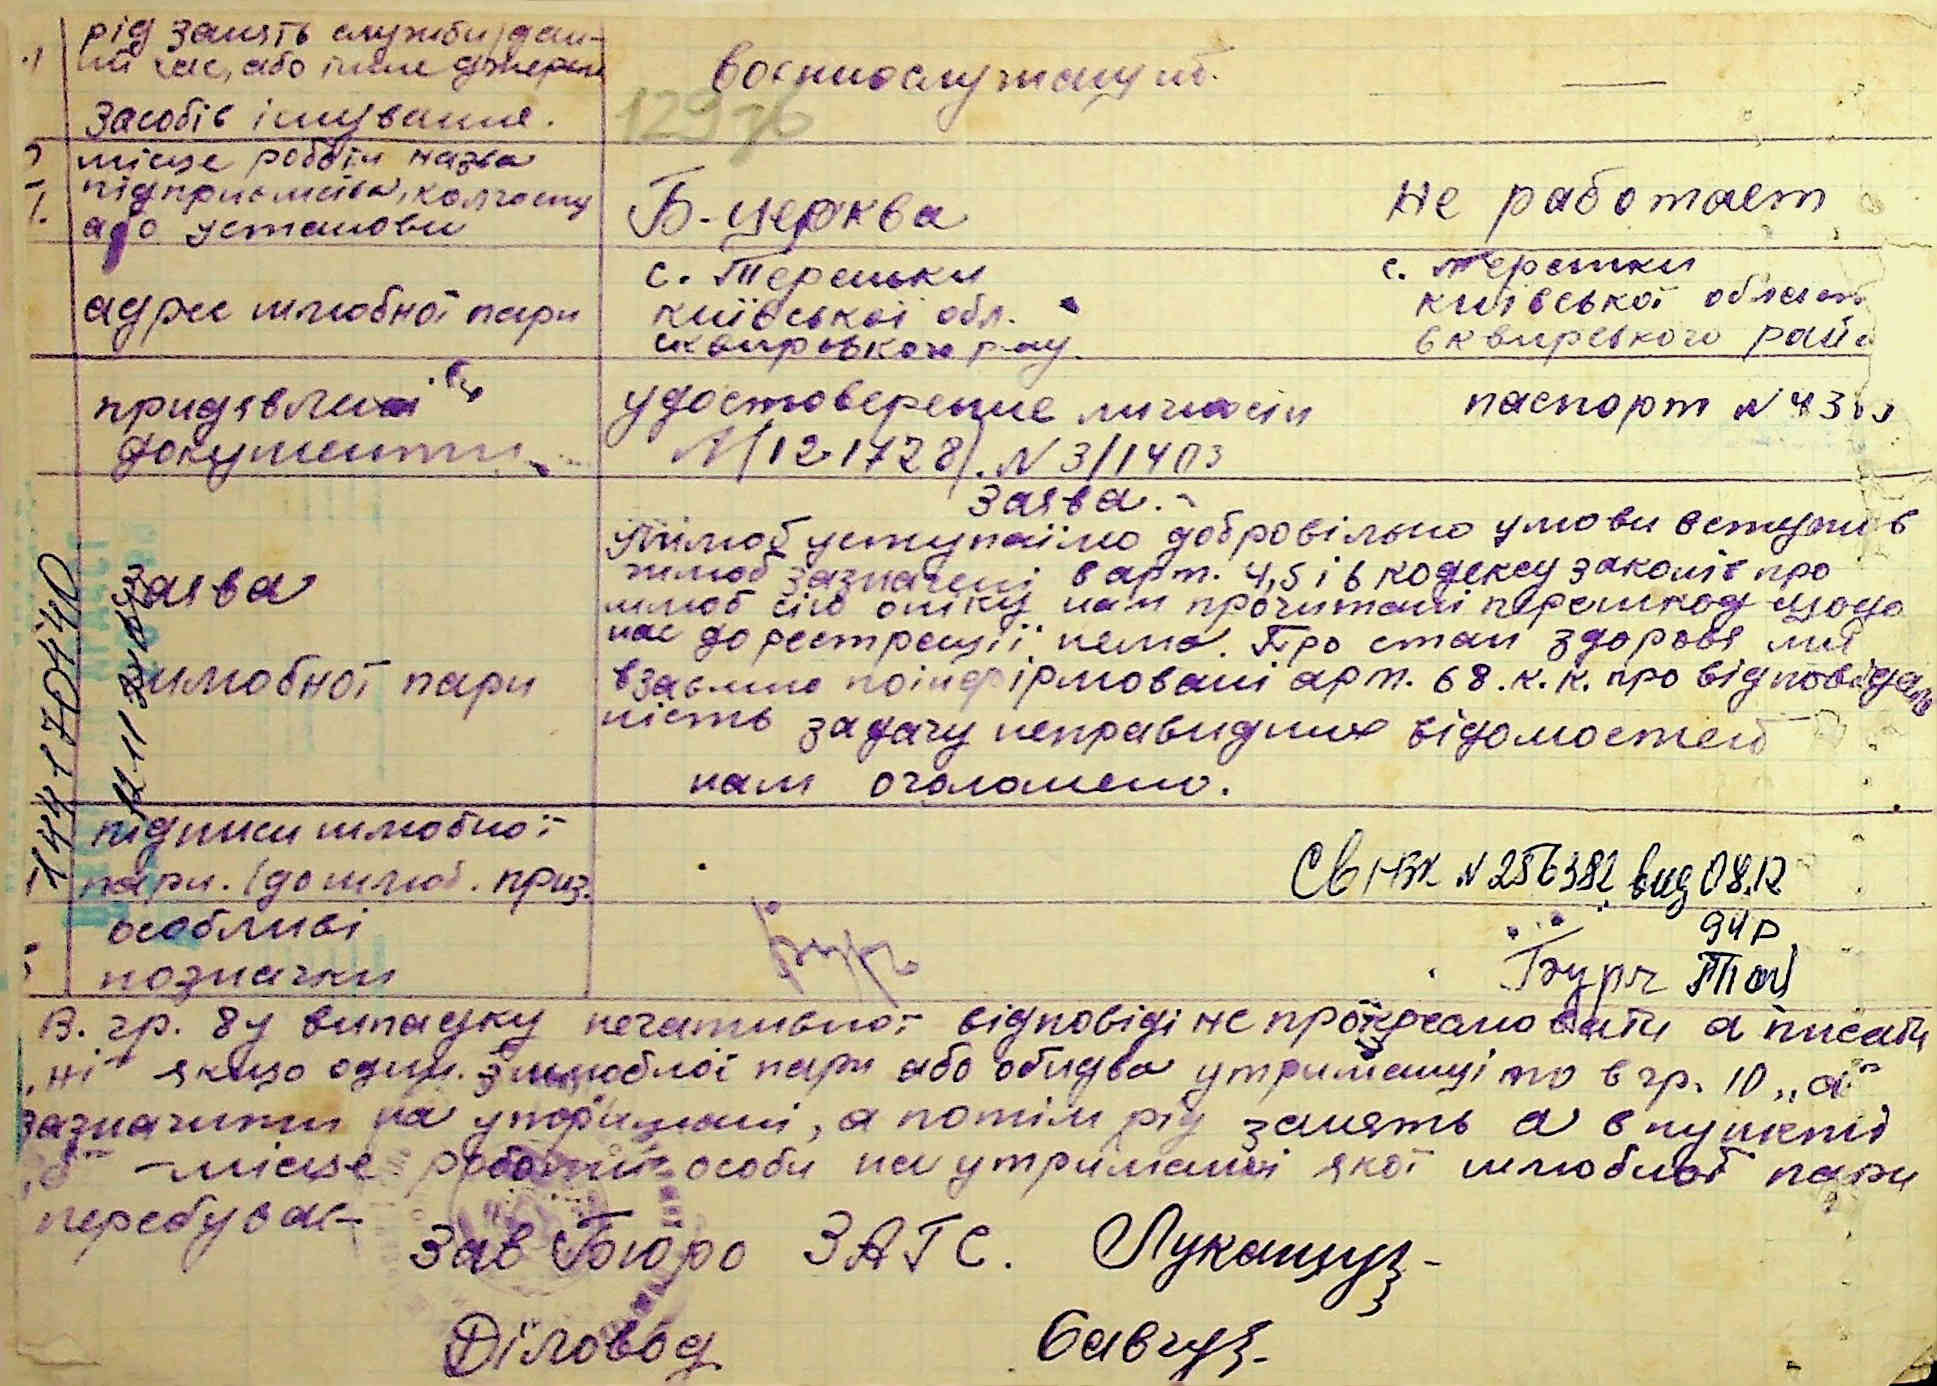 рід занять служби, дан-
ий час, або інше джерело
засобів існування.
военнослужащий.
—
12976
місце роботи назва
підприємства, колгоспу
або установи
Б-церква
не работает
адрес шлюбної пари
с. Терешки
київської обл.
сквирського р-ну.
с. терешки
київської област
сквирського рай
придявлені
документи
удостоверение личности
N 3/1403
паспорт N
заява
шлюбної пари
Заява.
шлюб уступаїмо добровільно умови вступу в
шлюб зазначені в арт. 4,5 і 6 кодексу законів про
шлюб сім опіку нам прочитані перешкод щодо
нас до рестрації нема. Про стан здоровя ми
взаємно поінфірмовані арт. 68. к. к. про відповідаль
ність задачу неправидних відомостей
нам оголошено.
підписи шлюбної
пари. (до шлюб. приз.
Св N 256382 вид 08.12
94р
особливі
позначки
Бурч
В. гр. 8 у випадку негативної відповіді не прокреслювати а писати
„ні" якщо один. з шлюблої пари або обидва утриманці то в гр. 10 „а"
зазначити на утриманні, а потім рід занять а в пункті
„б" – місце роботи особи на утриманні якої шлюбної пари
перебуває
Зав Бюро ЗАГС. Лукащук
Діловод Савчук